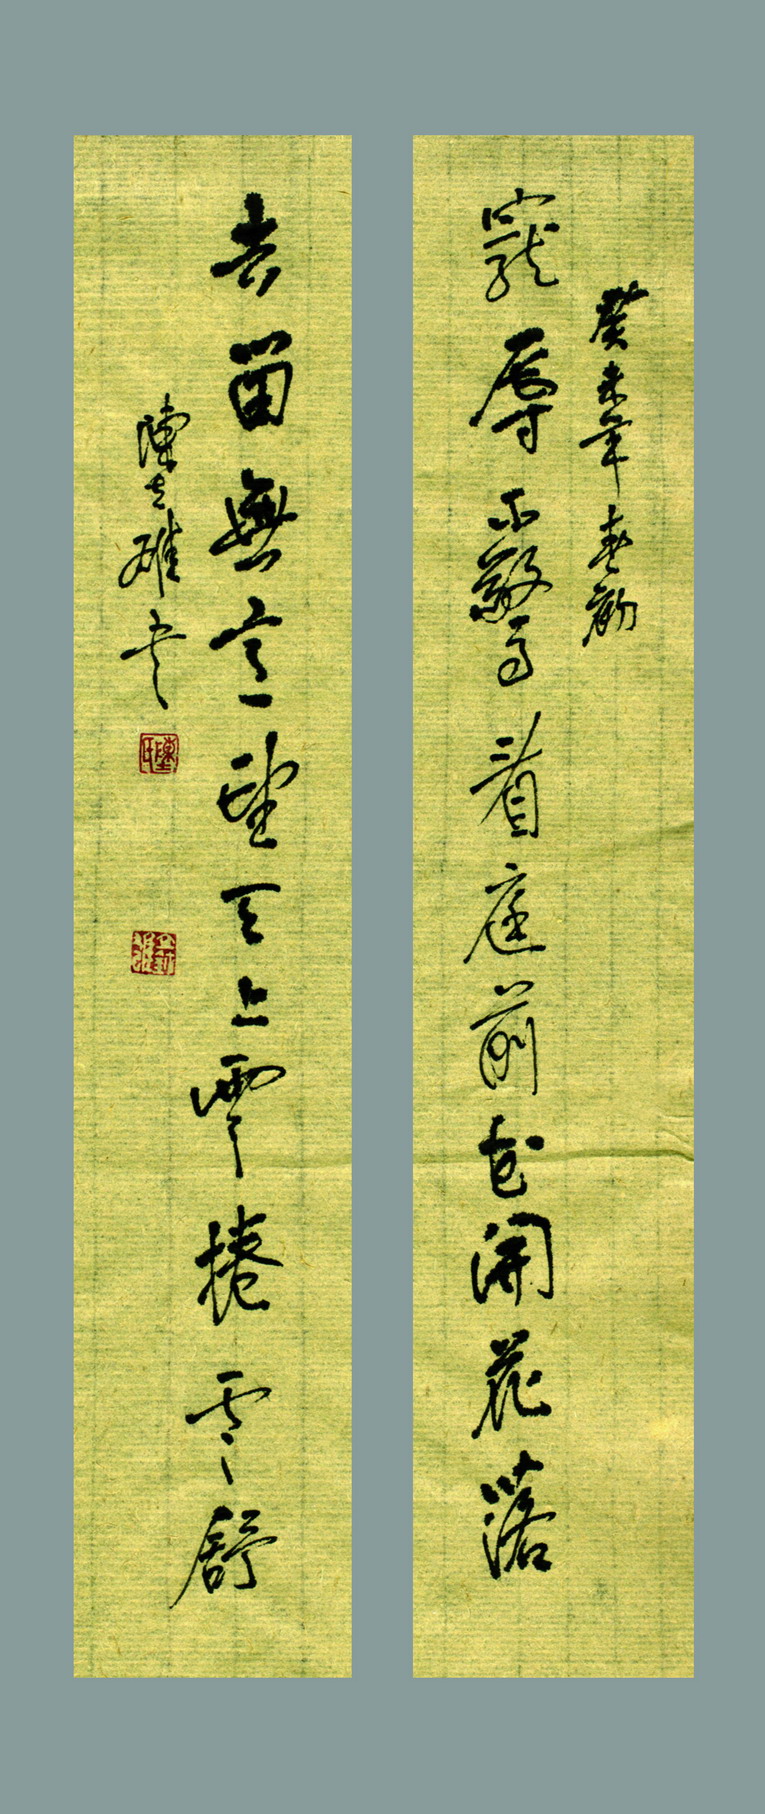 癸未年春
寵辱不驚看庭前花開花落
去留無意望天上雲捲雲舒
陳雄書